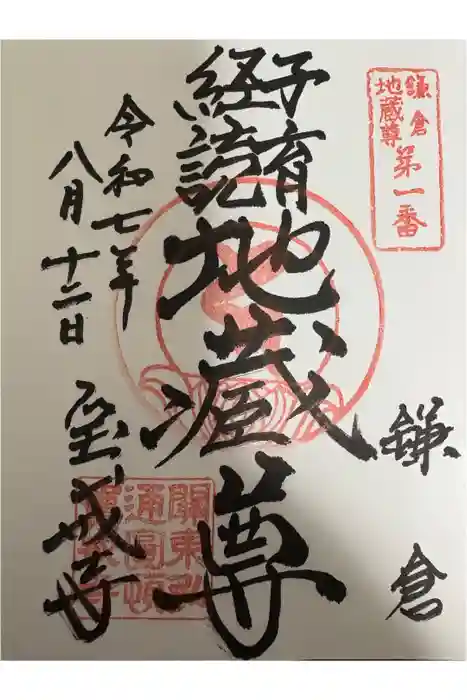 鎌倉
地蔵尊
第一番
鎌倉
子育
経読
地蔵尊
令和七年
八月十二日
宝戒寺
關東
通圓頓